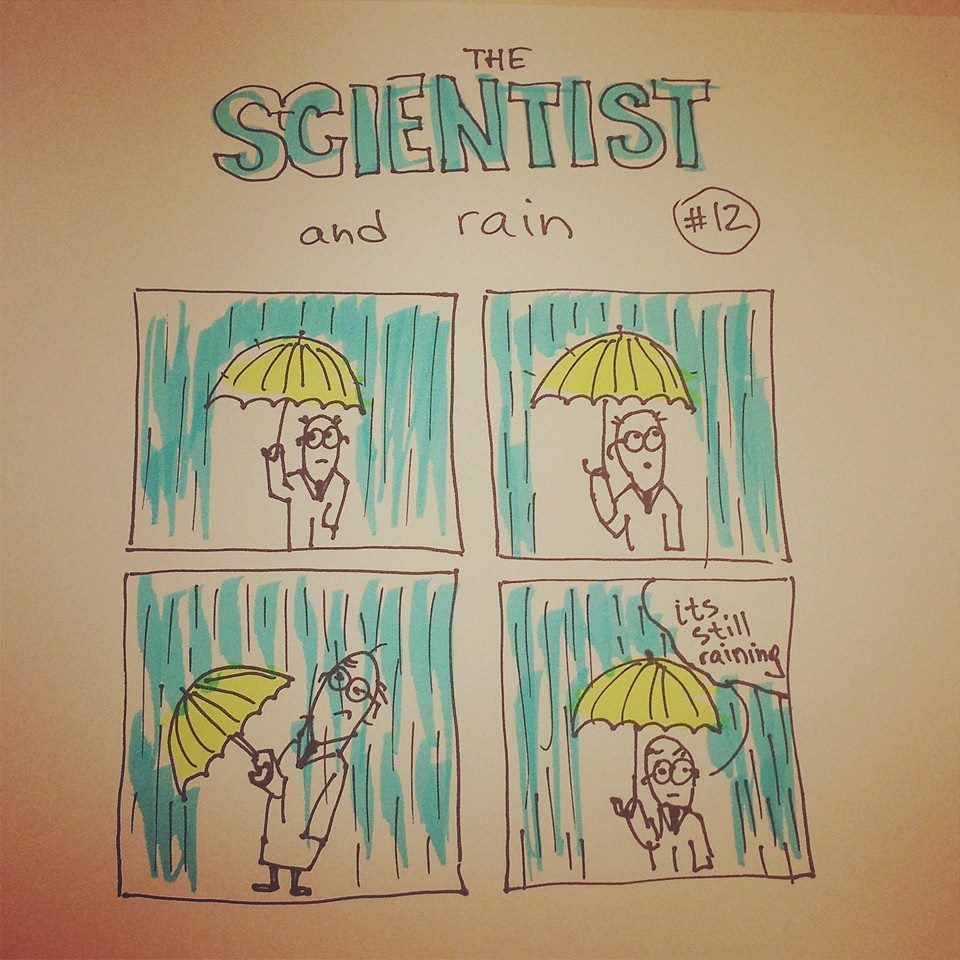 THE
SCIENTIST
and rain #12
its
still
raining